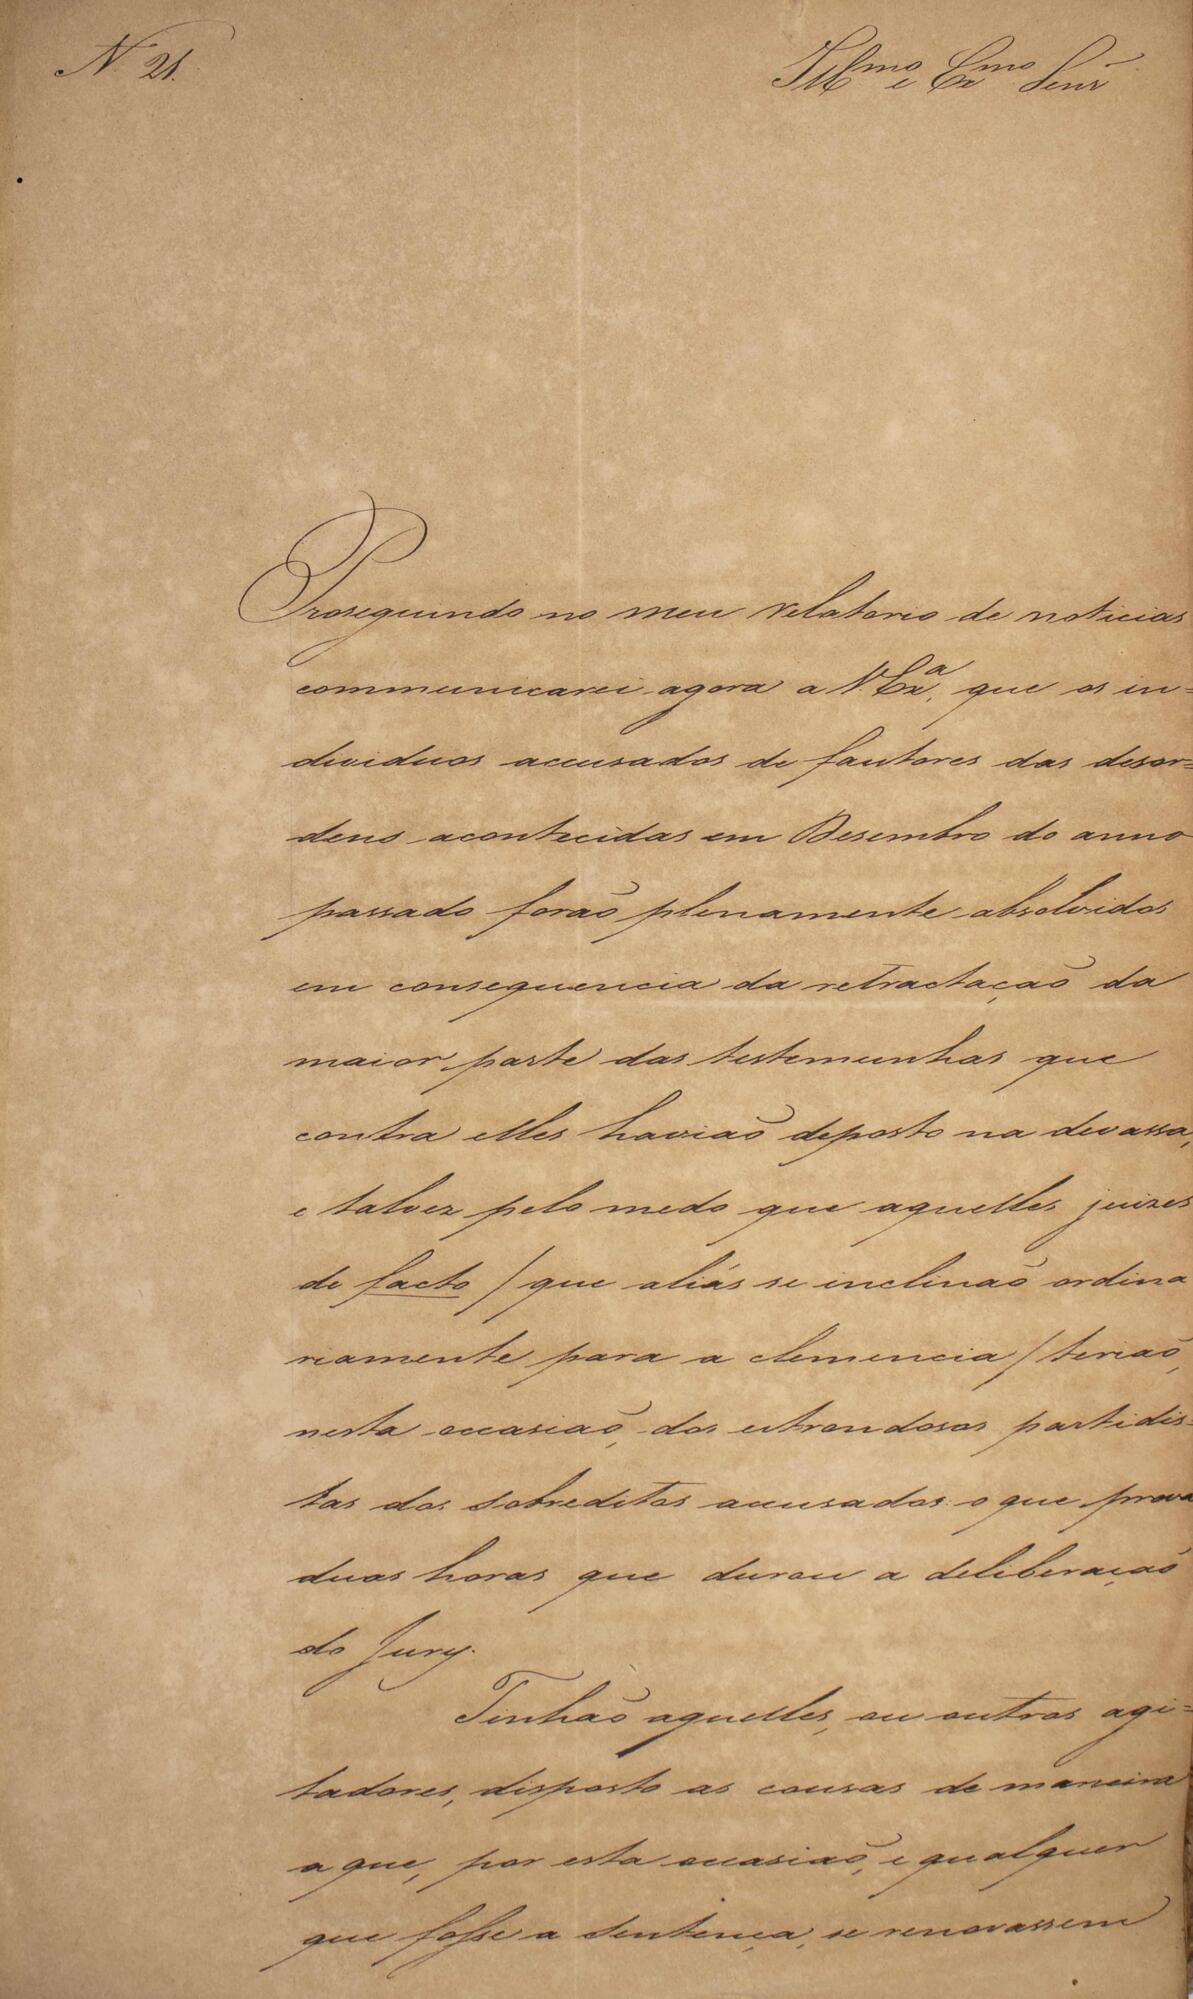 N. 21.
Ill.mo e Ex.mo Senr
Proseguindo no meu relatorio de noticias
communicarei agora a V. Ex.a, que os in=
dividuos accusados de fautores das desor=
dens acontecidas em Desembro do anno
passado forão plenamente absolvidos
em consequencia da retractação da
maior parte das testemunhas que
contra elles havião deposto na devassa,
e talvez pelo medo que aquelles juizes
de facto / que aliás se inclinão ordina
riamente para a clemencia / terião,
nesta occasião, dos estrondosos partidis=
tas dos sobreditos accusados: o que prova
duas horas que durou a deliberação
do Jury.
Tinhão aquelles, ou outros agi=
tadores, disposto as cousas de maneira
a que, por esta occasião, e qualquer
que fosse a sentença, se renovassem